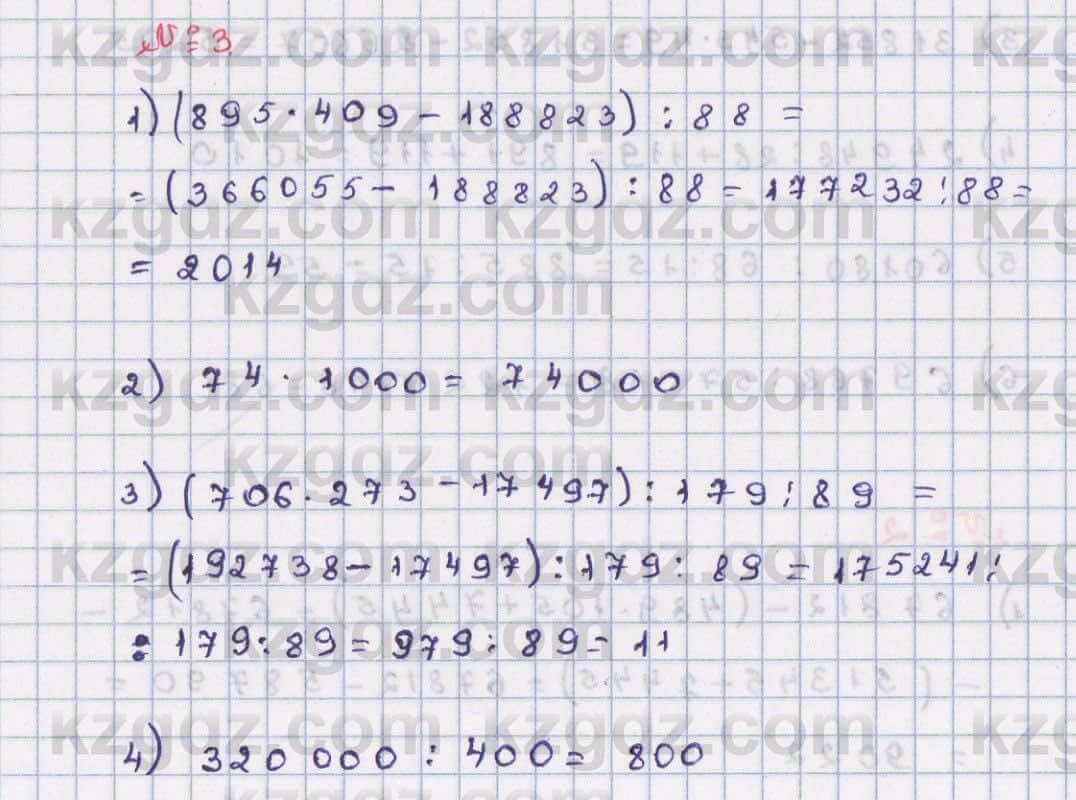 № 3
1) (895 · 409 – 188823) : 88 =
= (366055 – 188823) : 88 = 177232 : 88 =
= 2014
2) 74 · 1000 = 74000
3) (706 · 273 – 17497) : 179 : 89 =
= (192738 – 17497) : 179 : 89 = 175241 :
: 179 : 89 = 979 : 89 = 11
4) 320 000 : 400 = 800
kzgdz.com